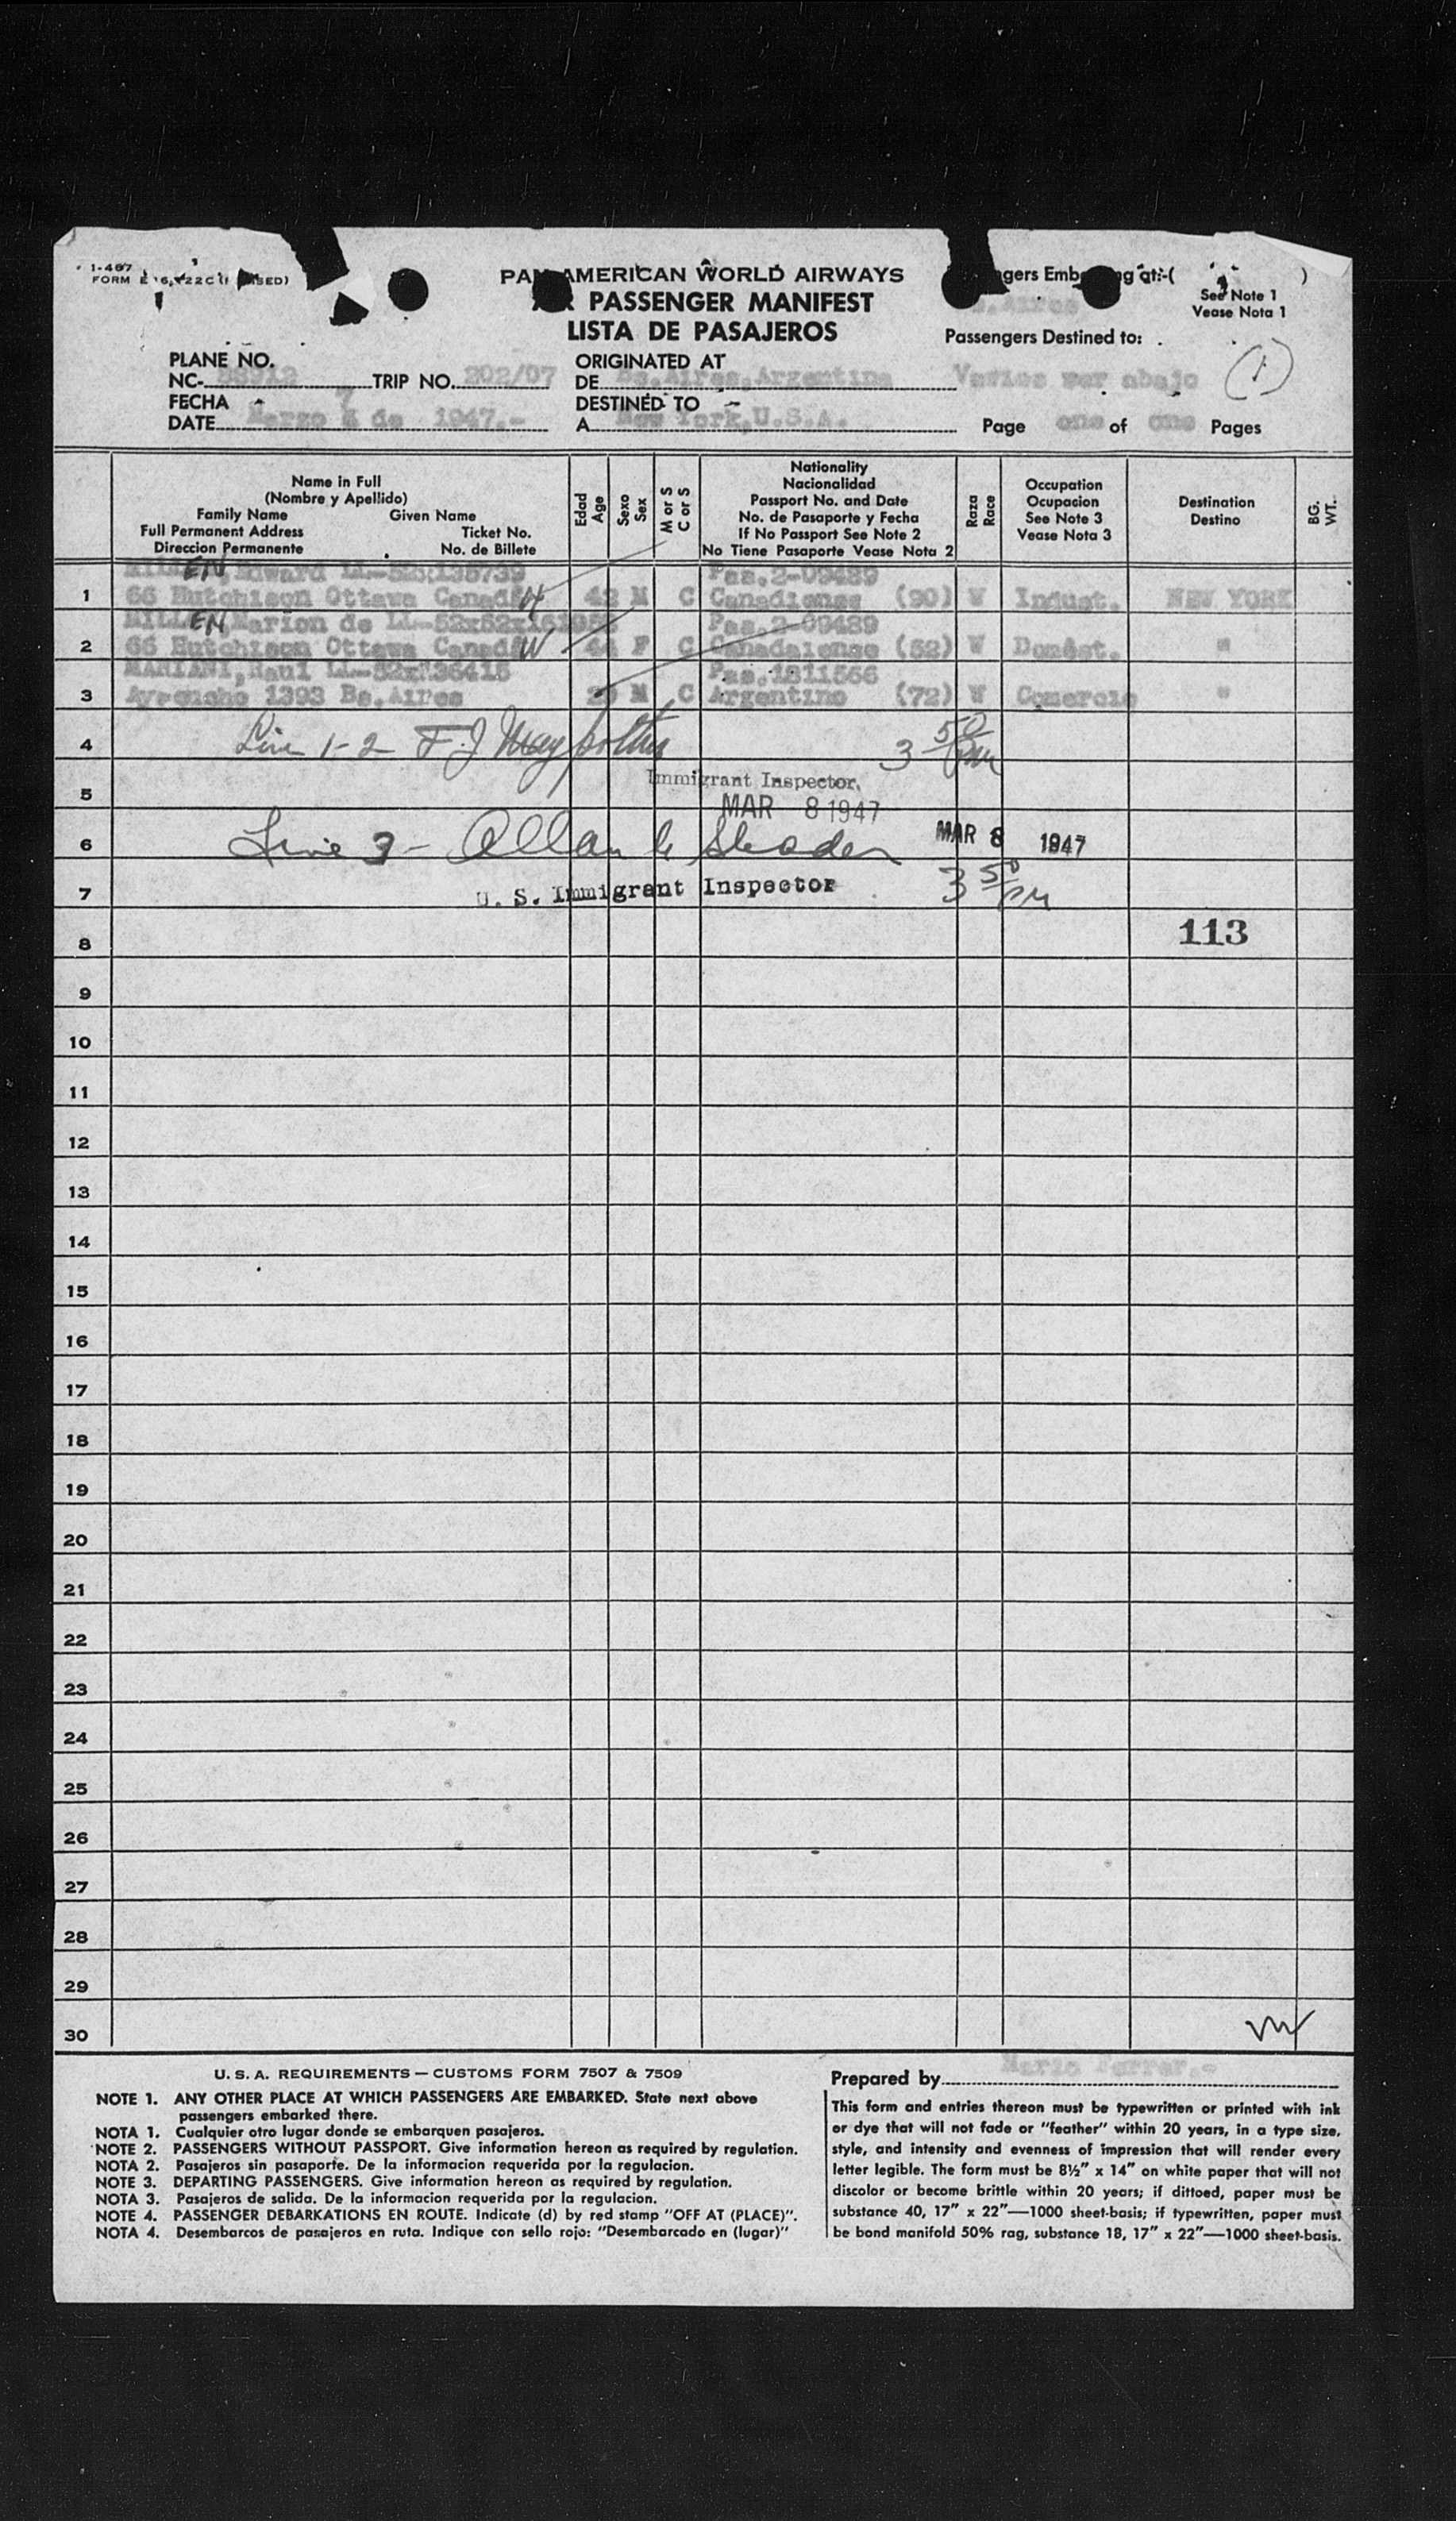 1-467
FORM E
PAN AMERICAN WORLD AIRWAYS
PASSENGER MANIFEST
LISTA DE PASAJEROS
See Note 1
Vease Nota 1
Passengers Destined to:
Varios ver abajo
(1)
PLANE NO.
NC- TRIP NO. 202/07
FECHA
DATE Marzo 7 de 1947.-
ORIGINATED AT
DE Bs.Aires,Argentina
DESTINED TO
A New York,U.S.A.
Page one of one Pages
Name in Full
(Nombre y Apellido)
Family Name Given Name
Full Permanent Address Ticket No.
Direccion Permanente No. de Billete
Edad
Age
Sexo
Sex
M or S
C or S
Nationality
Nacionalidad
Passport No. and Date
No. de Pasaporte y Fecha
If No Passport See Note 2
No Tiene Pasaporte Vease Nota 2
Raza
Race
Occupation
Ocupacion
See Note 3
Vease Nota 3
Destination
Destino
BG.
WT.
MILLEN, Edward LL-52x135739 Pas.2-09489
1 66 Hutchison Ottawa Canada H 42 M C Canadiense (90) W Indust. NEW YORK
MILLEN, Marion de Pas.2-09489
2 66 Hutchison Ottawa Canada W 44 F C Canadaiense (52) W Domést. "
MARIANI, Raul LL-52x136415 Pas.1811566
3 Ayacucho 1393 Bs.Aires M C Argentino (72) W Comercio "
4 Line 1-2 F J 3 50 PM
Immigrant Inspector.
5 MAR 8 1947
6 Line 3 - Allan MAR 8 1947
7 U. S. Immigrant Inspector 3 50 PM
8 113
9
10
11
12
13
14
15
16
17
18
19
20
21
22
23
24
25
26
27
28
29
30
U. S. A. REQUIREMENTS — CUSTOMS FORM 7507 & 7509
NOTE 1. ANY OTHER PLACE AT WHICH PASSENGERS ARE EMBARKED. State next above
passengers embarked there.
NOTA 1. Cualquier otro lugar donde se embarquen pasajeros.
NOTE 2. PASSENGERS WITHOUT PASSPORT. Give information hereon as required by regulation.
NOTA 2. Pasajeros sin pasaporte. De la informacion requerida por la regulacion.
NOTE 3. DEPARTING PASSENGERS. Give information hereon as required by regulation.
NOTA 3. Pasajeros de salida. De la informacion requerida por la regulacion.
NOTE 4. PASSENGER DEBARKATIONS EN ROUTE. Indicate (d) by red stamp "OFF AT (PLACE)".
NOTA 4. Desembarcos de pasajeros en ruta. Indique con sello rojo: "Desembarcado en (lugar)"
Prepared by Mario Ferrer.-
This form and entries thereon must be typewritten or printed with ink
or dye that will not fade or "feather" within 20 years, in a type size,
style, and intensity and evenness of impression that will render every
letter legible. The form must be 8½" x 14" on white paper that will not
discolor or become brittle within 20 years; if dittoed, paper must be
substance 40, 17" x 22"—1000 sheet-basis; if typewritten, paper must
be bond manifold 50% rag, substance 18, 17" x 22"—1000 sheet-basis.